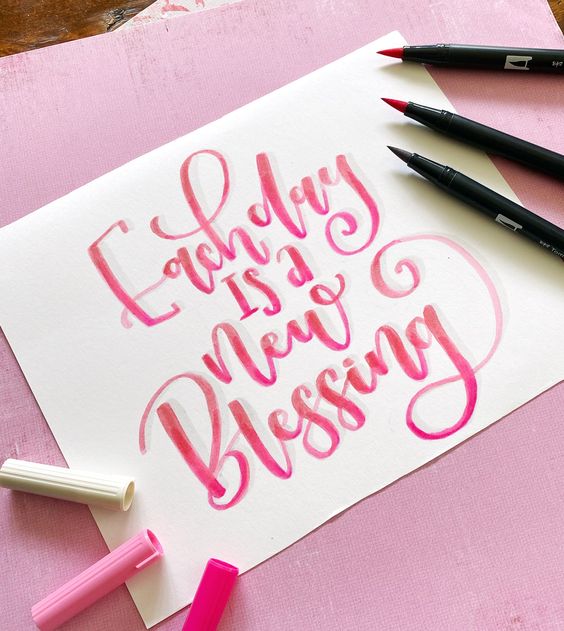 Each day
is a
new
Blessing